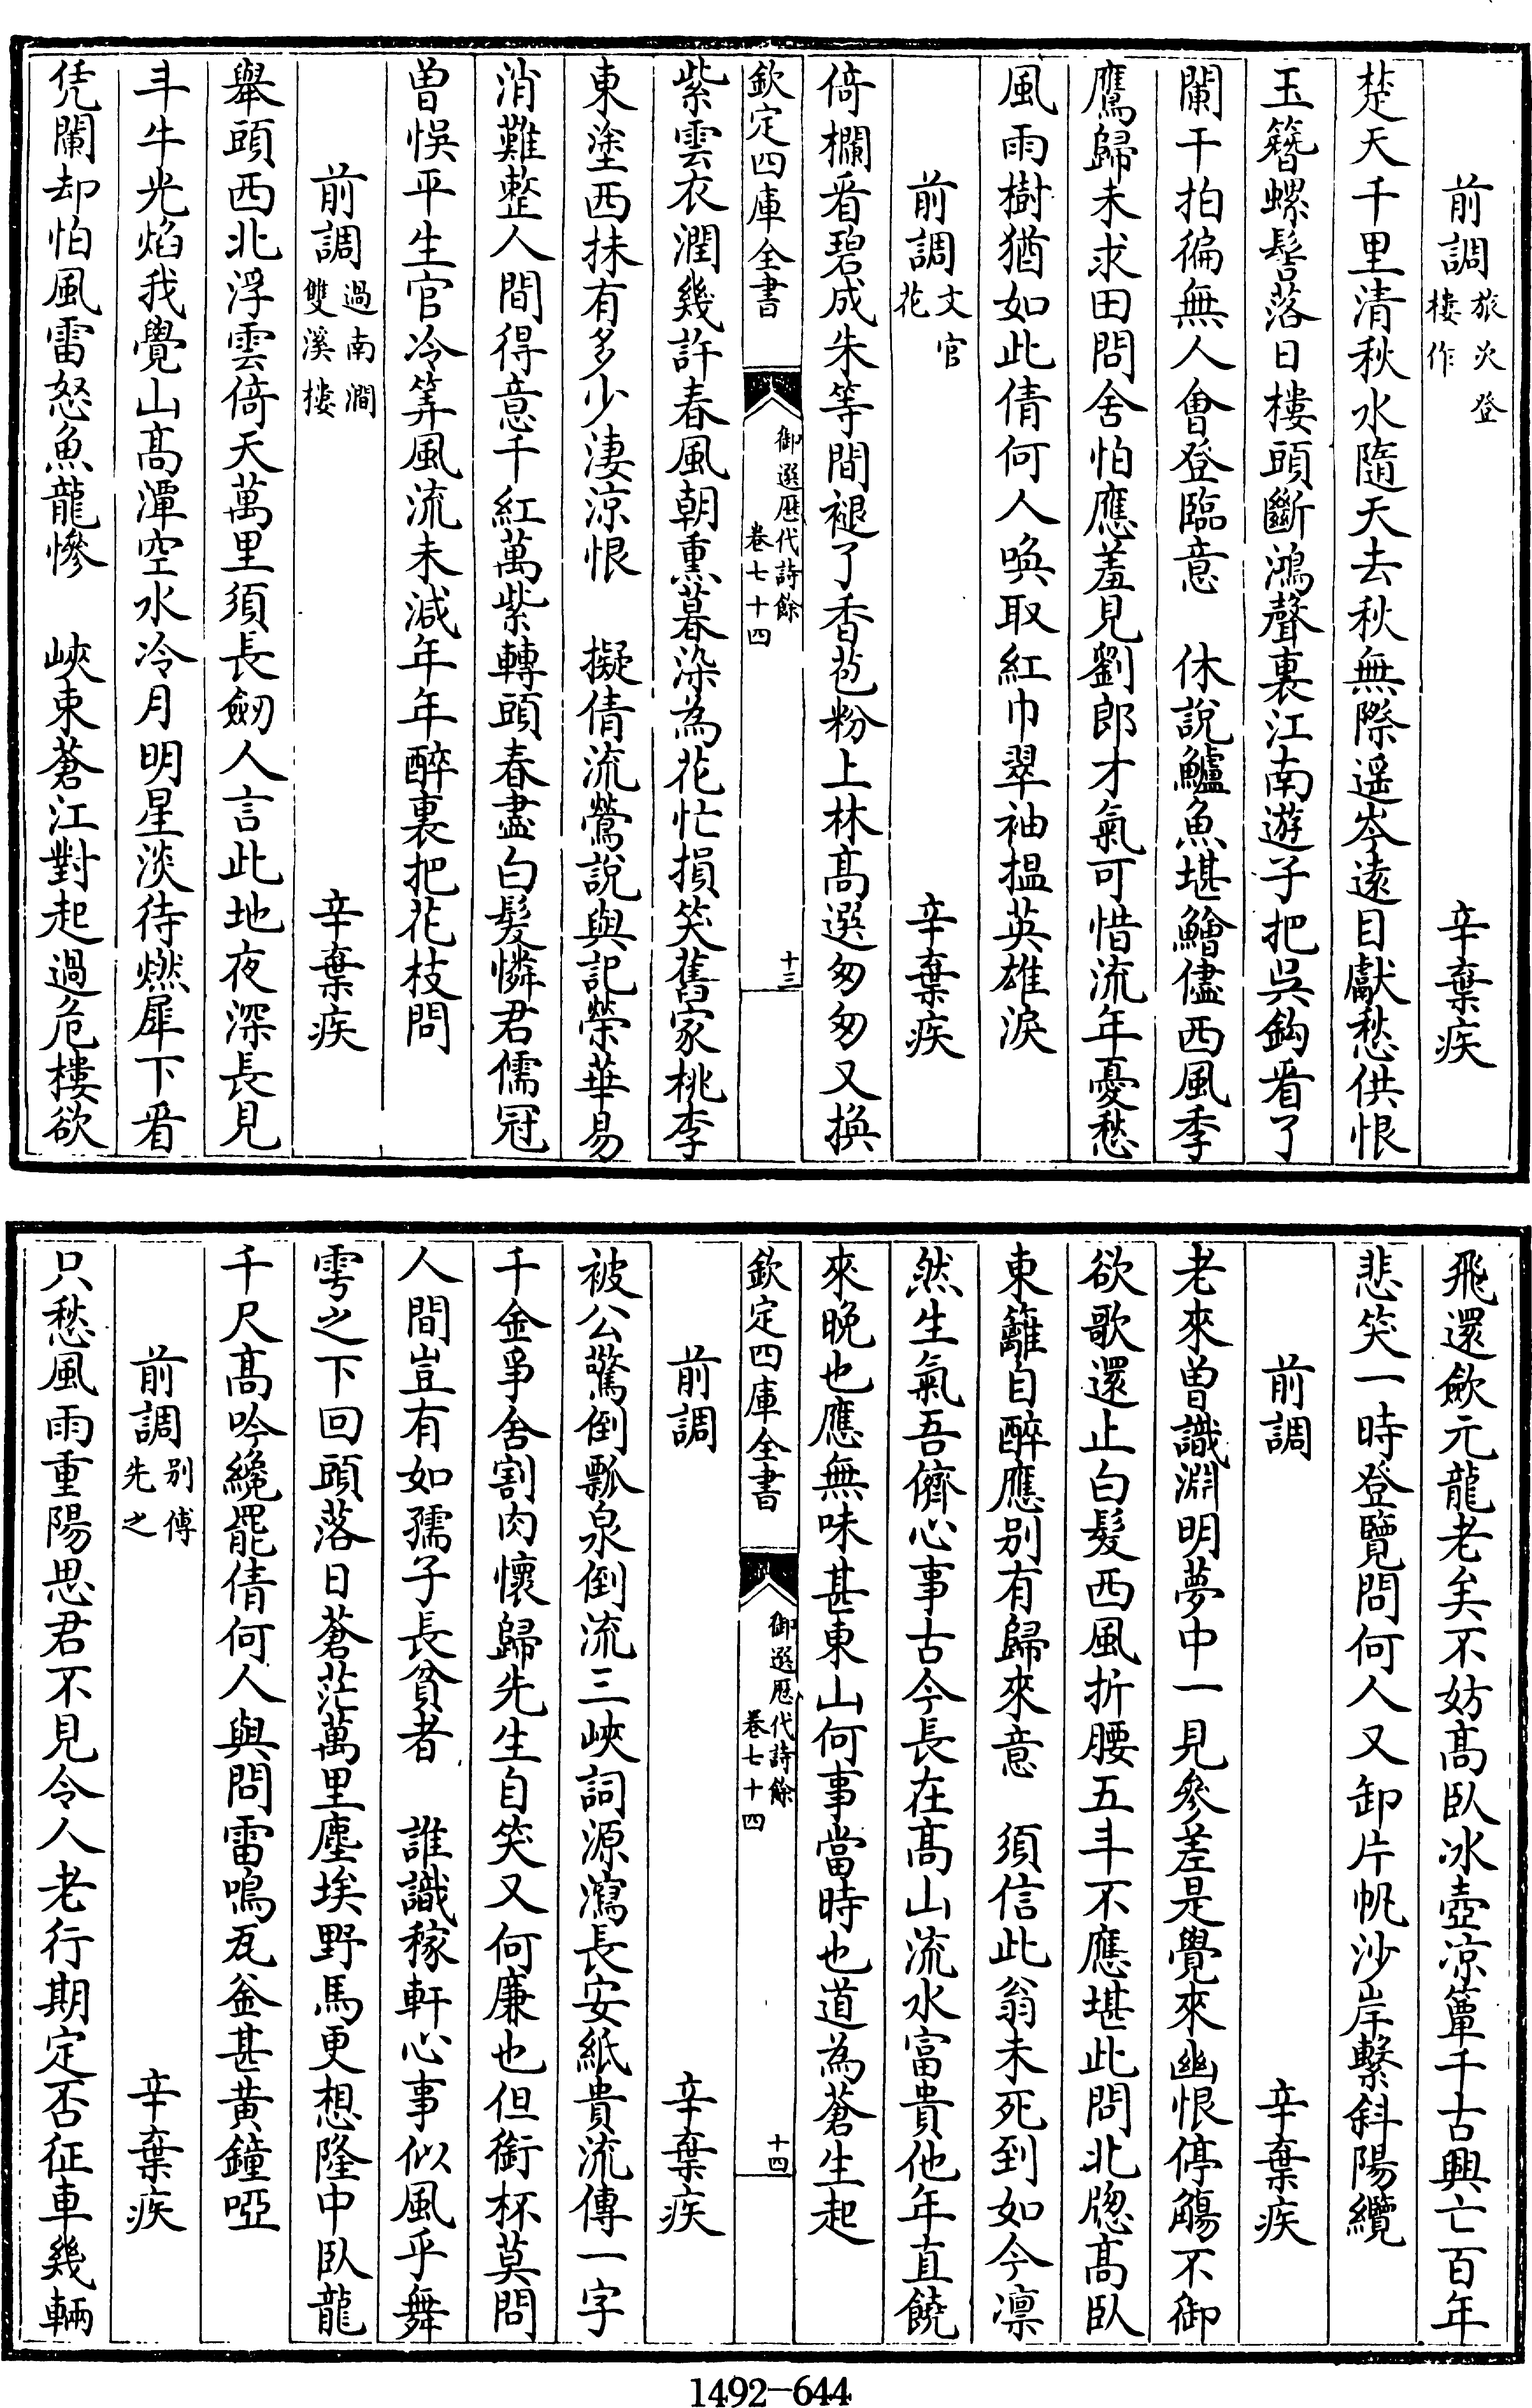 前調旅次登樓作　辛棄疾
楚天千里清秋水隨天去秋無際遥岑逺目獻愁供恨
玉簪螺髻落日樓頭斷鴻聲裏江南遊子把吳鈎㸔了
闌干拍徧無人㑹登臨意　休說鱸魚堪鱠儘西風季
鷹歸未求田問舍怕應羞見劉郎才氣可惜流年憂愁
風雨樹猶如此倩何人喚取紅巾翠袖揾英雄淚
前調文官花　辛棄疾
倚欄㸔碧成朱等閒褪了香苞粉上林髙選匆匆又換
欽定四庫全書　御選歷代詩餘卷七十四　十三
紫雲衣潤幾許春風朝熏暮染為花忙損笑舊家桃李
東塗西抹有多少淒涼恨　擬倩流鶯說與記榮華易
消難整人間得意千紅萬紫轉頭春盡白髮憐君儒冠
曾悮平生官冷筭風流未減年年醉裏把花枝問
前調過南澗雙溪樓　辛棄疾
舉頭西北浮雲倚天萬里須長劒人言此地夜深長見
斗牛光焰我覺山髙潭空水冷月明星淡待燃犀下㸔
凭闌却怕風雷怒魚龍慘　峽束蒼江對起過危樓欲
飛還歛元龍老矣不妨髙臥冰壺凉簟千古興亡百年
悲笑一時登覽問何人又卸片帆沙岸繫斜陽纜
前調　辛棄疾
老來曾識淵明夢中一見參差是覺來幽恨停觴不御
欲歌還止白髮西風折腰五斗不應堪此問北牕髙臥
東籬自醉應别有歸來意　須信此翁未死到如今凛
然生氣吾儕心事古今長在髙山流水富貴他年直饒
來晚也應無味甚東山何事當時也道為蒼生起
欽定四庫全書　御選歷代詩餘卷七十四　十四
前調　辛棄疾
被公驚倒瓢泉倒流三峽詞源瀉長安紙貴流傳一字
千金爭舍割肉懷歸先生自笑又何廉也但銜杯莫問
人間豈有如孺子長貧者　誰識稼軒心事似風乎舞
雩之下回頭落日蒼茫萬里塵埃野馬更想隆中臥龍
千尺髙吟纔罷倩何人與問雷鳴瓦釡甚黄鐘啞
前調别傅先之　辛棄疾
只愁風雨重陽思君不見令人老行期定否征車幾輛
1492—644